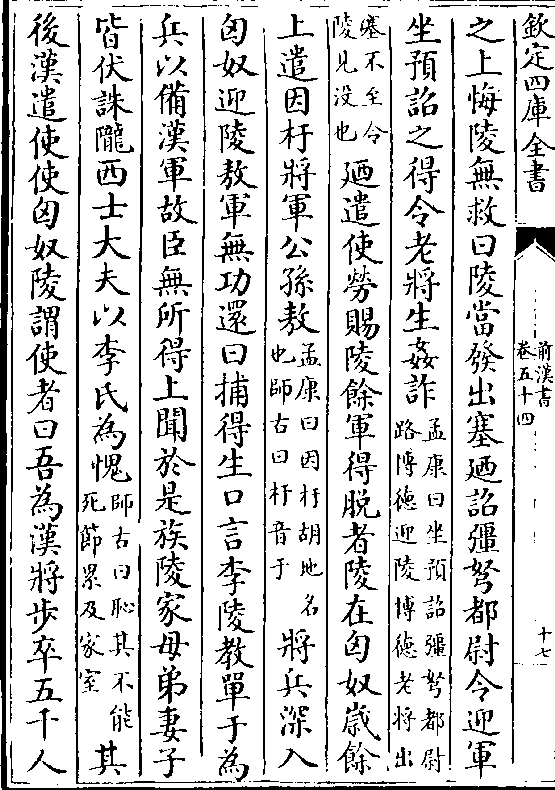 欽定四庫全書
前漢書
卷五十四
十七
之上悔陵無救曰陵當發出塞廼詔彊弩都尉令迎軍
坐預詔之得令老將生姦詐孟康曰坐預詔彊弩都尉路博德迎陵博德老將出
塞不至令陵見没也廼遣使勞賜陵餘軍得脱者陵在匈奴歳餘
上遣因杅將軍公孫敖孟康曰因杅胡地名也師古曰杅音于將兵深入
匈奴迎陵敖軍無功還曰捕得生口言李陵教單于為
兵以備漢軍故臣無所得上聞於是族陵家母弟妻子
皆伏誅隴西士大夫以李氏為愧師古曰恥其不能死節累及家室其
後漢遣使使匈奴陵謂使者曰吾為漢將步卒五千人